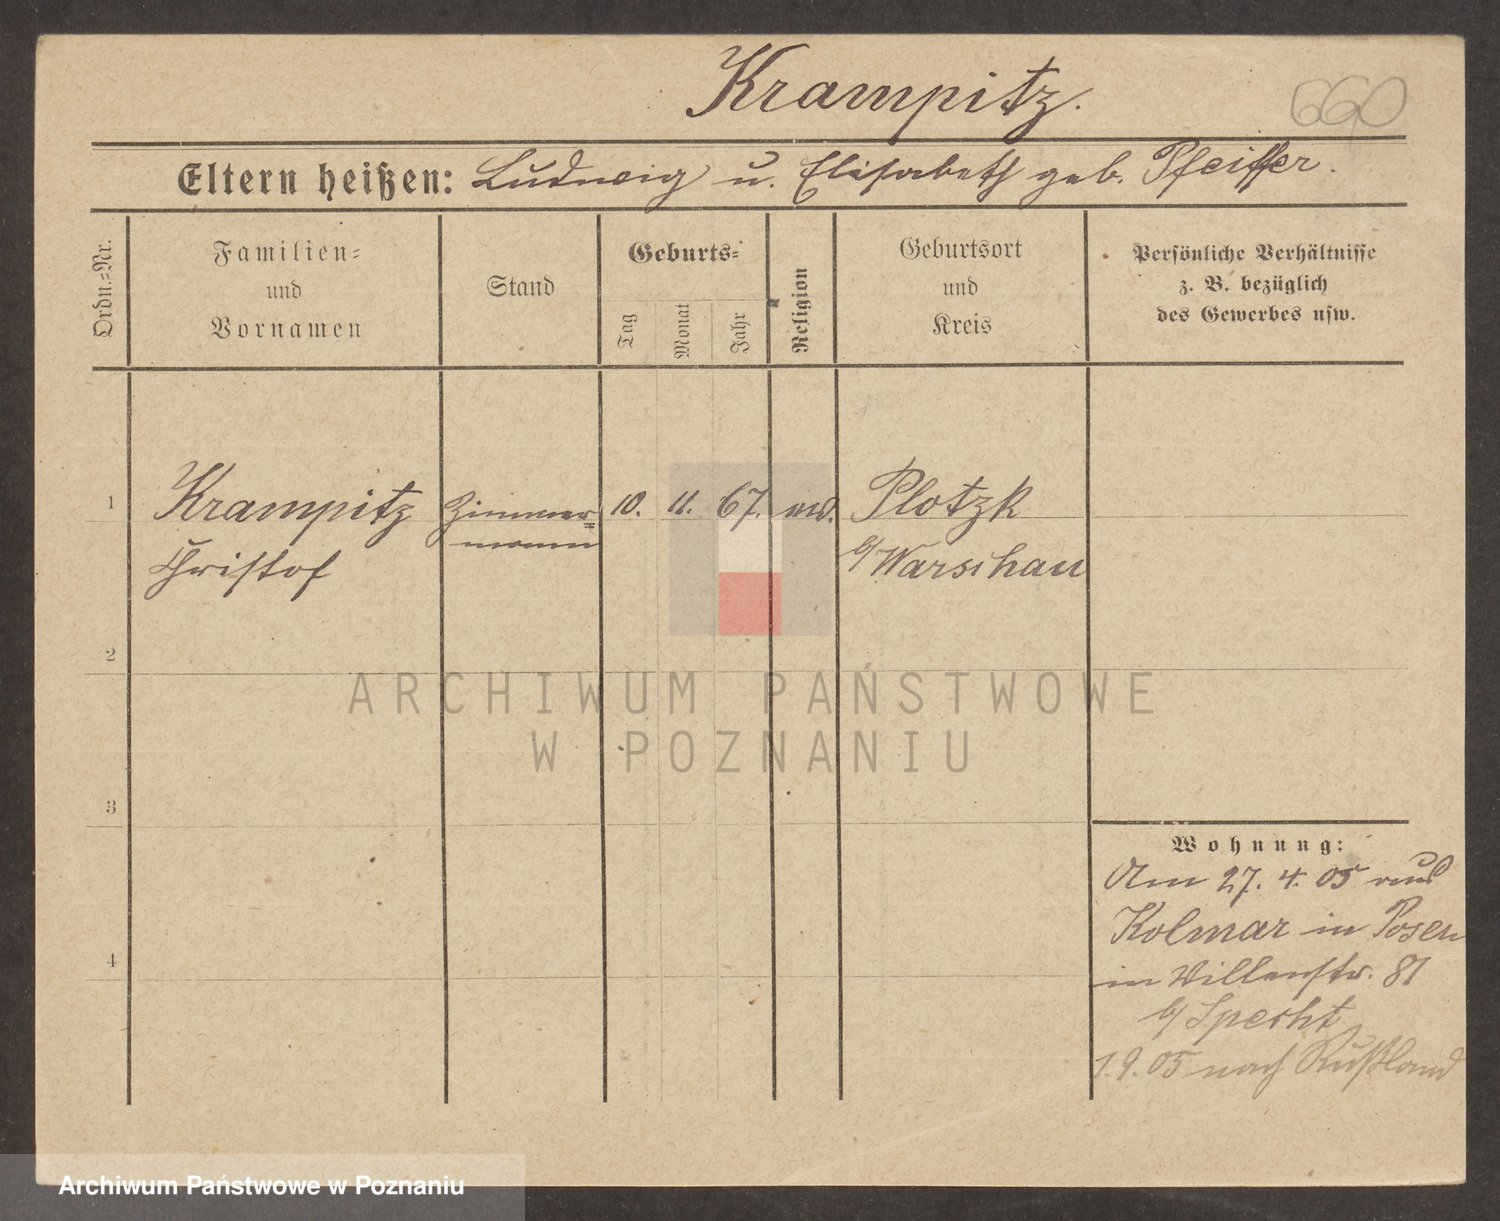 Krampitz.
660
Eltern heißen: Ludwig u. Elisabeth geb. Pfeiffer.
Ordn.=Nr.
Familien=
und
Vornamen
Stand
Geburts=
Tag
Monat
Jahr
Religion
Geburtsort
und
Kreis
Persönliche Verhältnisse
z. B. bezüglich
des Gewerbes usw.
1
Krampitz Zimmer= 10. 11. 67. Plotzk
Christof mann b/Warschau
2
ARCHIWUM PAŃSTWOWE
W POZNANIU
3
Wohnung:
Am 27. 4. 05 aus
Kolmar in Posen
4
in Villenstr. 81
b/Specht
1.9.05 nach Rußland
Archiwum Państwowe w Poznaniu